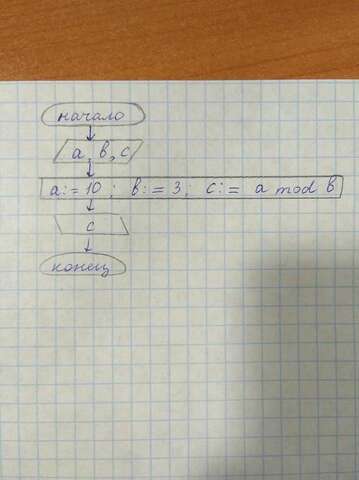 начало
а, в, с
а:=10; в:=3; с:= a mod в
с
конец